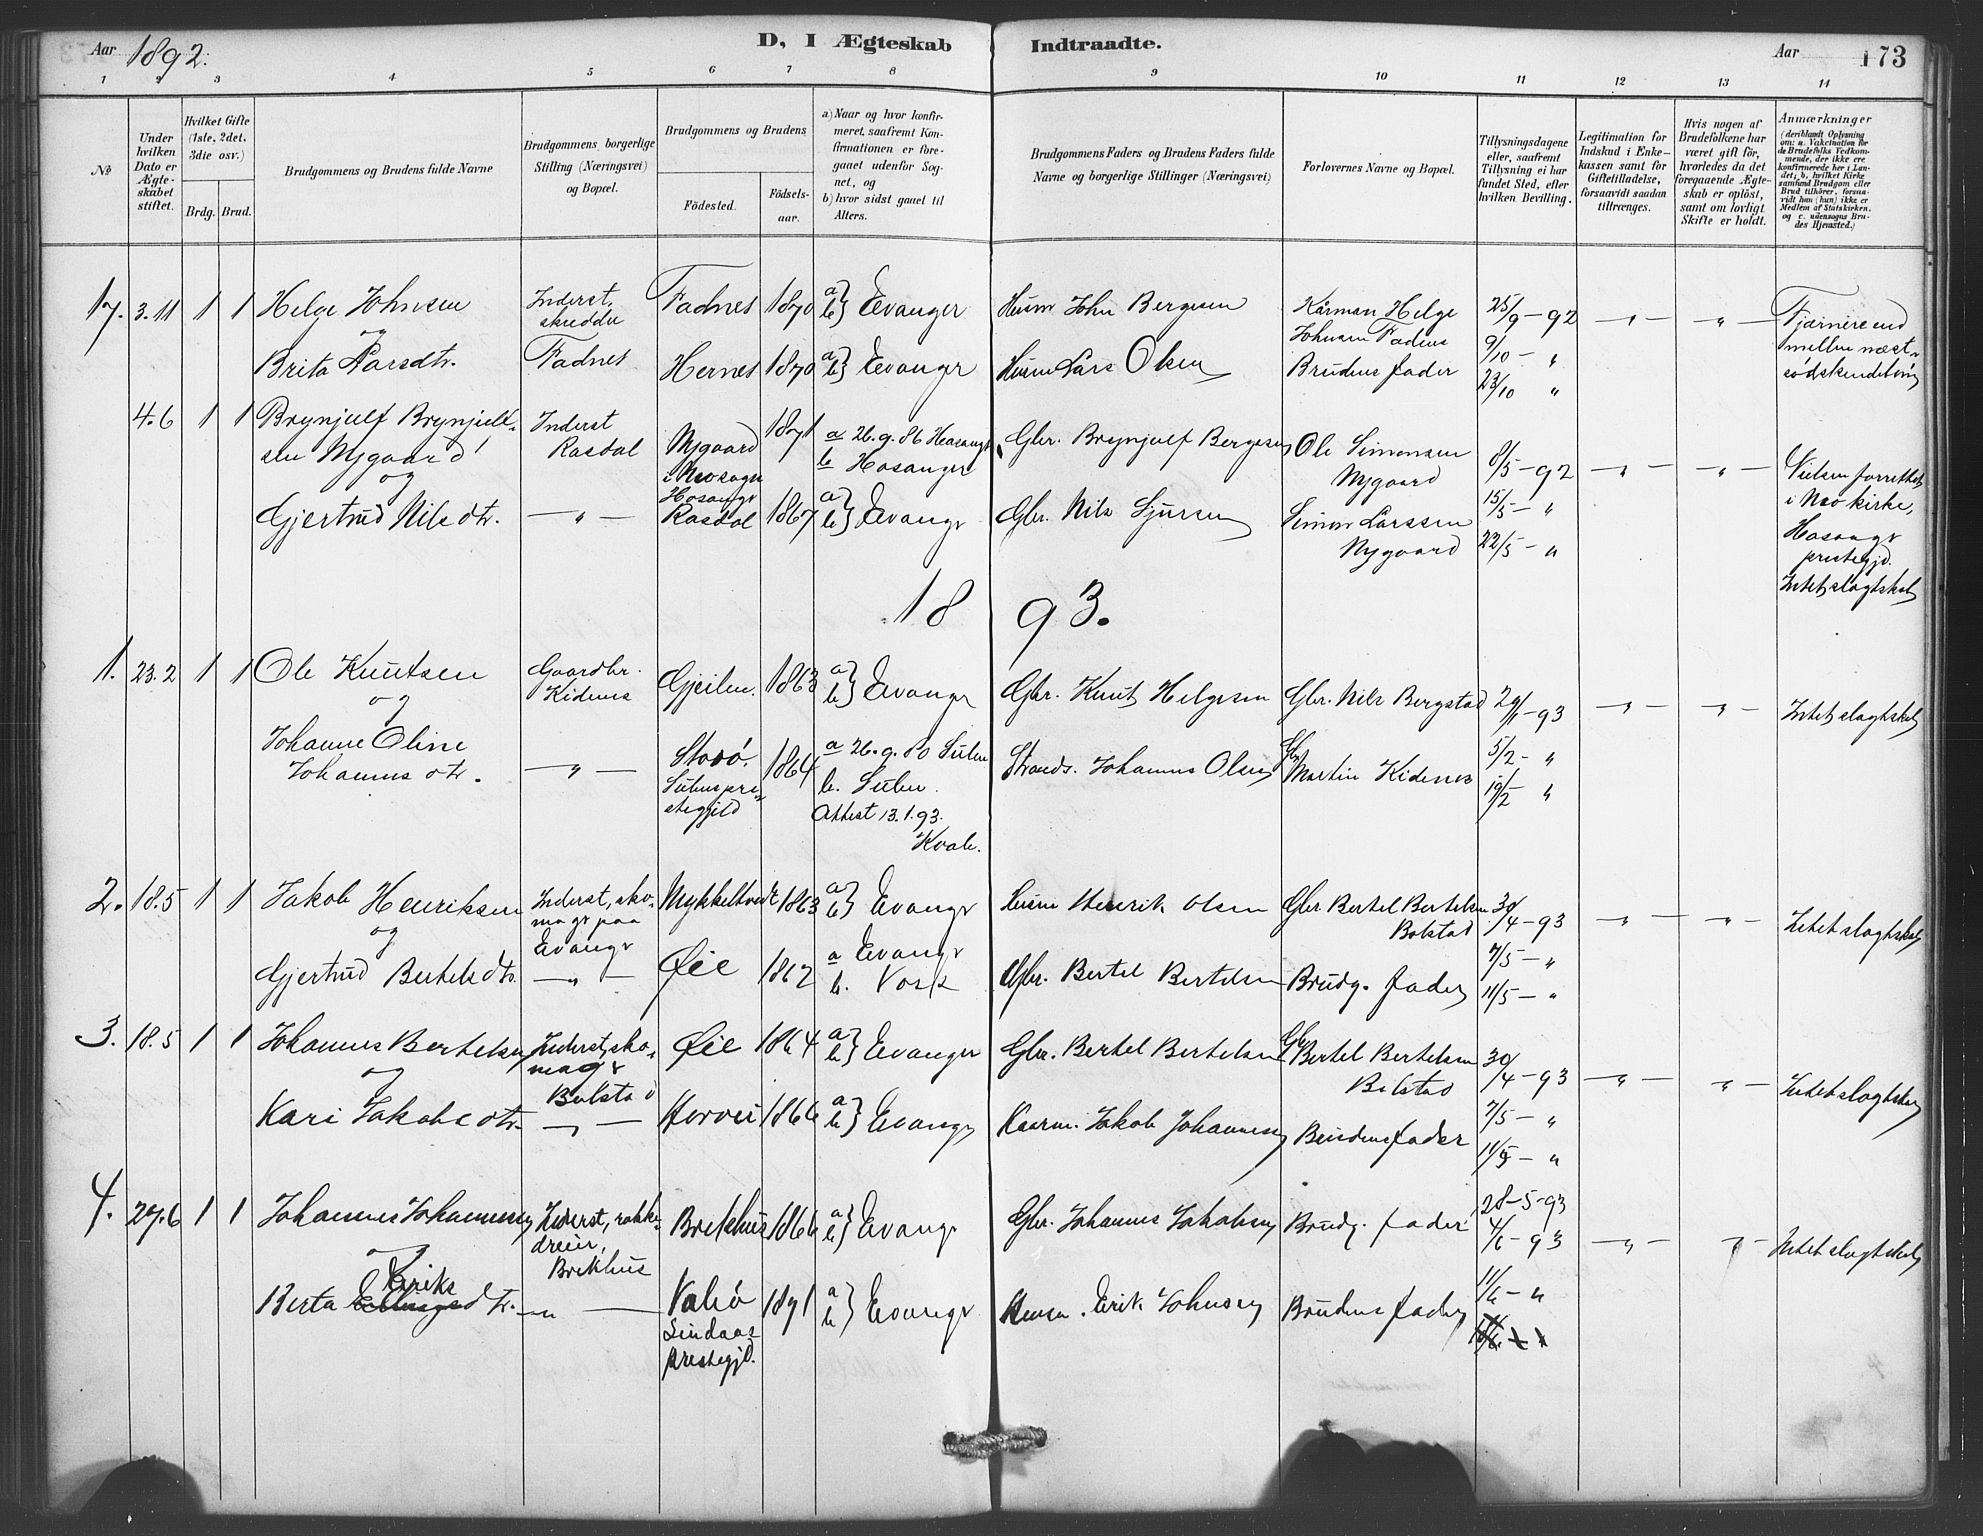 Aar 1892.
D, I Ægteskab Indtraadte.
Aar 173
1 2 3 4 5 6 7 8 9 10 11 12 13 14
No
Under hvilken Dato er Ægteskabet stiftet.
Hvilket Gifte (1ste, 2det, 3die osv.)
Brdg. Brud.
Brudgommens og Brudens fulde Navne
Brudgommens borgerlige Stilling (Næringsvei) og Bopæl.
Brudgommens og Brudens
Fødested.
Fødselsaar.
a) Naar og hvor konfirmeret, saafremt Konfirmationen er foregaaet udenfor Sognet, og
b) hvor sidst gaaet til Alters.
Brudgommens Faders og Brudens Faders fulde Navne og borgerlige Stillinger (Næringsvei)
Forlovernes Navne og Bopæl.
Tillysningsdagene eller, saafremt Tillysning ei har fundet Sted, efter hvilken Bevilling.
Legitimation for Indskud i Enkekassen samt for Giftetilladelse, forsaavidt saadan tiltrænges.
Hvis nogen af Brudefolkene har været gift før, hvorledes da det foregaaende Ægteskab er opløst, samt om lovligt Skifte er holdt.
Anmærkninger
(deriblandt Oplysning om: a. Vakcination for de Brudefolks Vedkommende, der ikke ere konfirmerede her i Landet; b. hvilket Kirkesamfund Brudgom eller Brud tilhører, forsaavidt han (hun) ikke er Medlem af Statskirken, og c. udensogns Brudes Hjemsted.)
17. 3.11 1 1 Helge Johnsen Inderst, skredder Fadnes 1870 a) b) Evanger Husm John Bergesen Kårman Helge Johnsen Fadnes 25/9 - 92 - " - - " - Fjærnere end
og
Brita Larsdtr. Fadnes Hernes 1870 a) b) Evanger Husm Lars Olsen Brudens fader 9/10 - " mellem næst-
23/10 " sødskendebørn
4.6 1 1 Brynjulf Brynjulf- Inderst Nygaard 1871 a 26.9.86 Hosanger Gbr. Brynjulf Bergesen Ole Simonsen 8/5 - 92 - " - - " - Vielsen forrettet
sen Nygaard Rasdal b Hosanger Nygaard i
og Hosangr Kirke,
Gjertrud Nilsdtr. - " - Rasdal 1867 a) b) Evangr Gbr. Nils Sjursen Simon Larssen 15/5 - " Hosangr
Nygaard 22/5 - " prestegjd.
Intet slagtskab
1893.
1. 23.2 1 1 Ole Knutsen Gaardbr. Kidenes Gjeilen. 1863 a) b) Evanger Gbr. Knut Helgesen Gbr. Nils Bergstad 29/1 - 93 - " - - " - Intet slagtskab
og
Johanne Oline Johannesdtr. - " - 1864 a 26.9.80 Sulen Strands. Johannes Olsen Gbr Martin Kidenes 5/2 - "
Sulens pre- b. Sulen. 19/2 "
stegjeld Attest 13.1.93.
Kvale.
2. 18.5 1 1 Jakob Henriksen Inderst, sko- Mykkeltvedt 1863 a) b) Evangr Husm Henrik Olsen Gbr Bertel Bertelsen 30/4 - 93 - " - - " - Intet slagtskab
og magr paa Bolstad
Evangr
Gjertrud Bertelsdtr. - " - Øie 1862 a Evangr Gbr. Bertel Bertelsen Brudg. fader 7/5 - "
b. Voss 11/5 - "
3. 18.5 1 1 Johannes Bertelsen Inderst, sko- Øie 1864 a) b) Evanger Gbr. Bertel Bertelsen Gbr Bertel Bertelsen 30/4 - 93 - " - - " - Intet slagtskab
og magr Bolstad
Bolstad
Kari Jakobsdtr. - " - Horvei 1866 a) b) Evangr Kaarm. Jakob Johannesen Brudens fader 7/5 - "
11/5 - "
4. 27.6 1 1 Johannes Johannesen Inderst, rokke- Brekhus 1866 a) b) Evangr Gbr. Johannes Jakobsen Brudg. fader 28-5-93
og dreier, 4/6 - 93 - " - " - Intet slagtskab
Brekhus
Eriks
Berta dtr. - " - 1871 a) b) Evangr Husm. Erik Johnsen Brudens fader 11/6 - "
Lindaas
prestegjd.